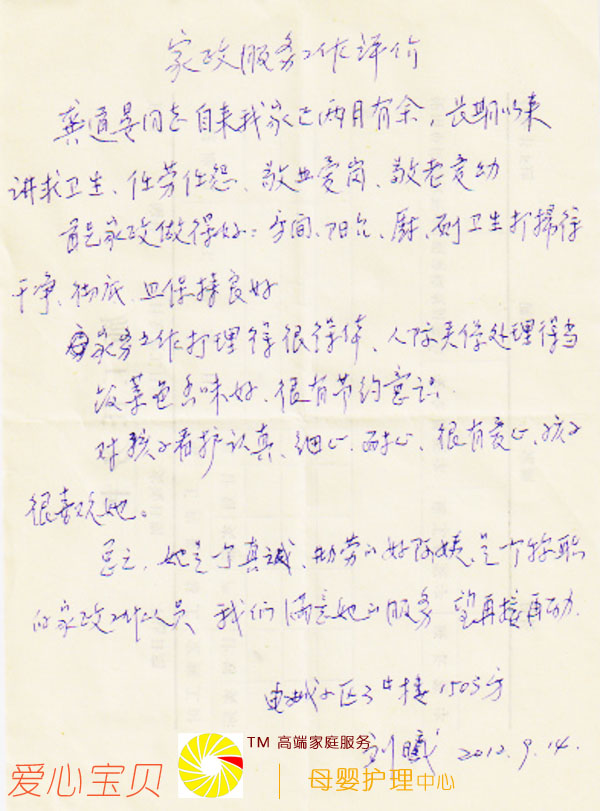 家政服务工作评价
龚道晏同志自来我家已两月有余,长期以来
讲求卫生、任劳任怨、敬业爱岗、敬老爱幼
首先家政做得好:房间、阳台、厨、厕卫生打掃得
干净、彻底,且保持良好
家务工作打理得很得体、人际关系处理得当
饭菜色香味好、很有节约意识
对孩子看护认真、细心、耐心、很有爱心、孩子
很喜欢她。
总之,她是个真诚、勤劳的好阿姨,是个称职
的家政工作人员 我们满意她的服务 望再接再历.
小区3#楼1503房
刘 2012.9.14.
TM 高端家庭服务
爱心宝贝
母婴护理中心